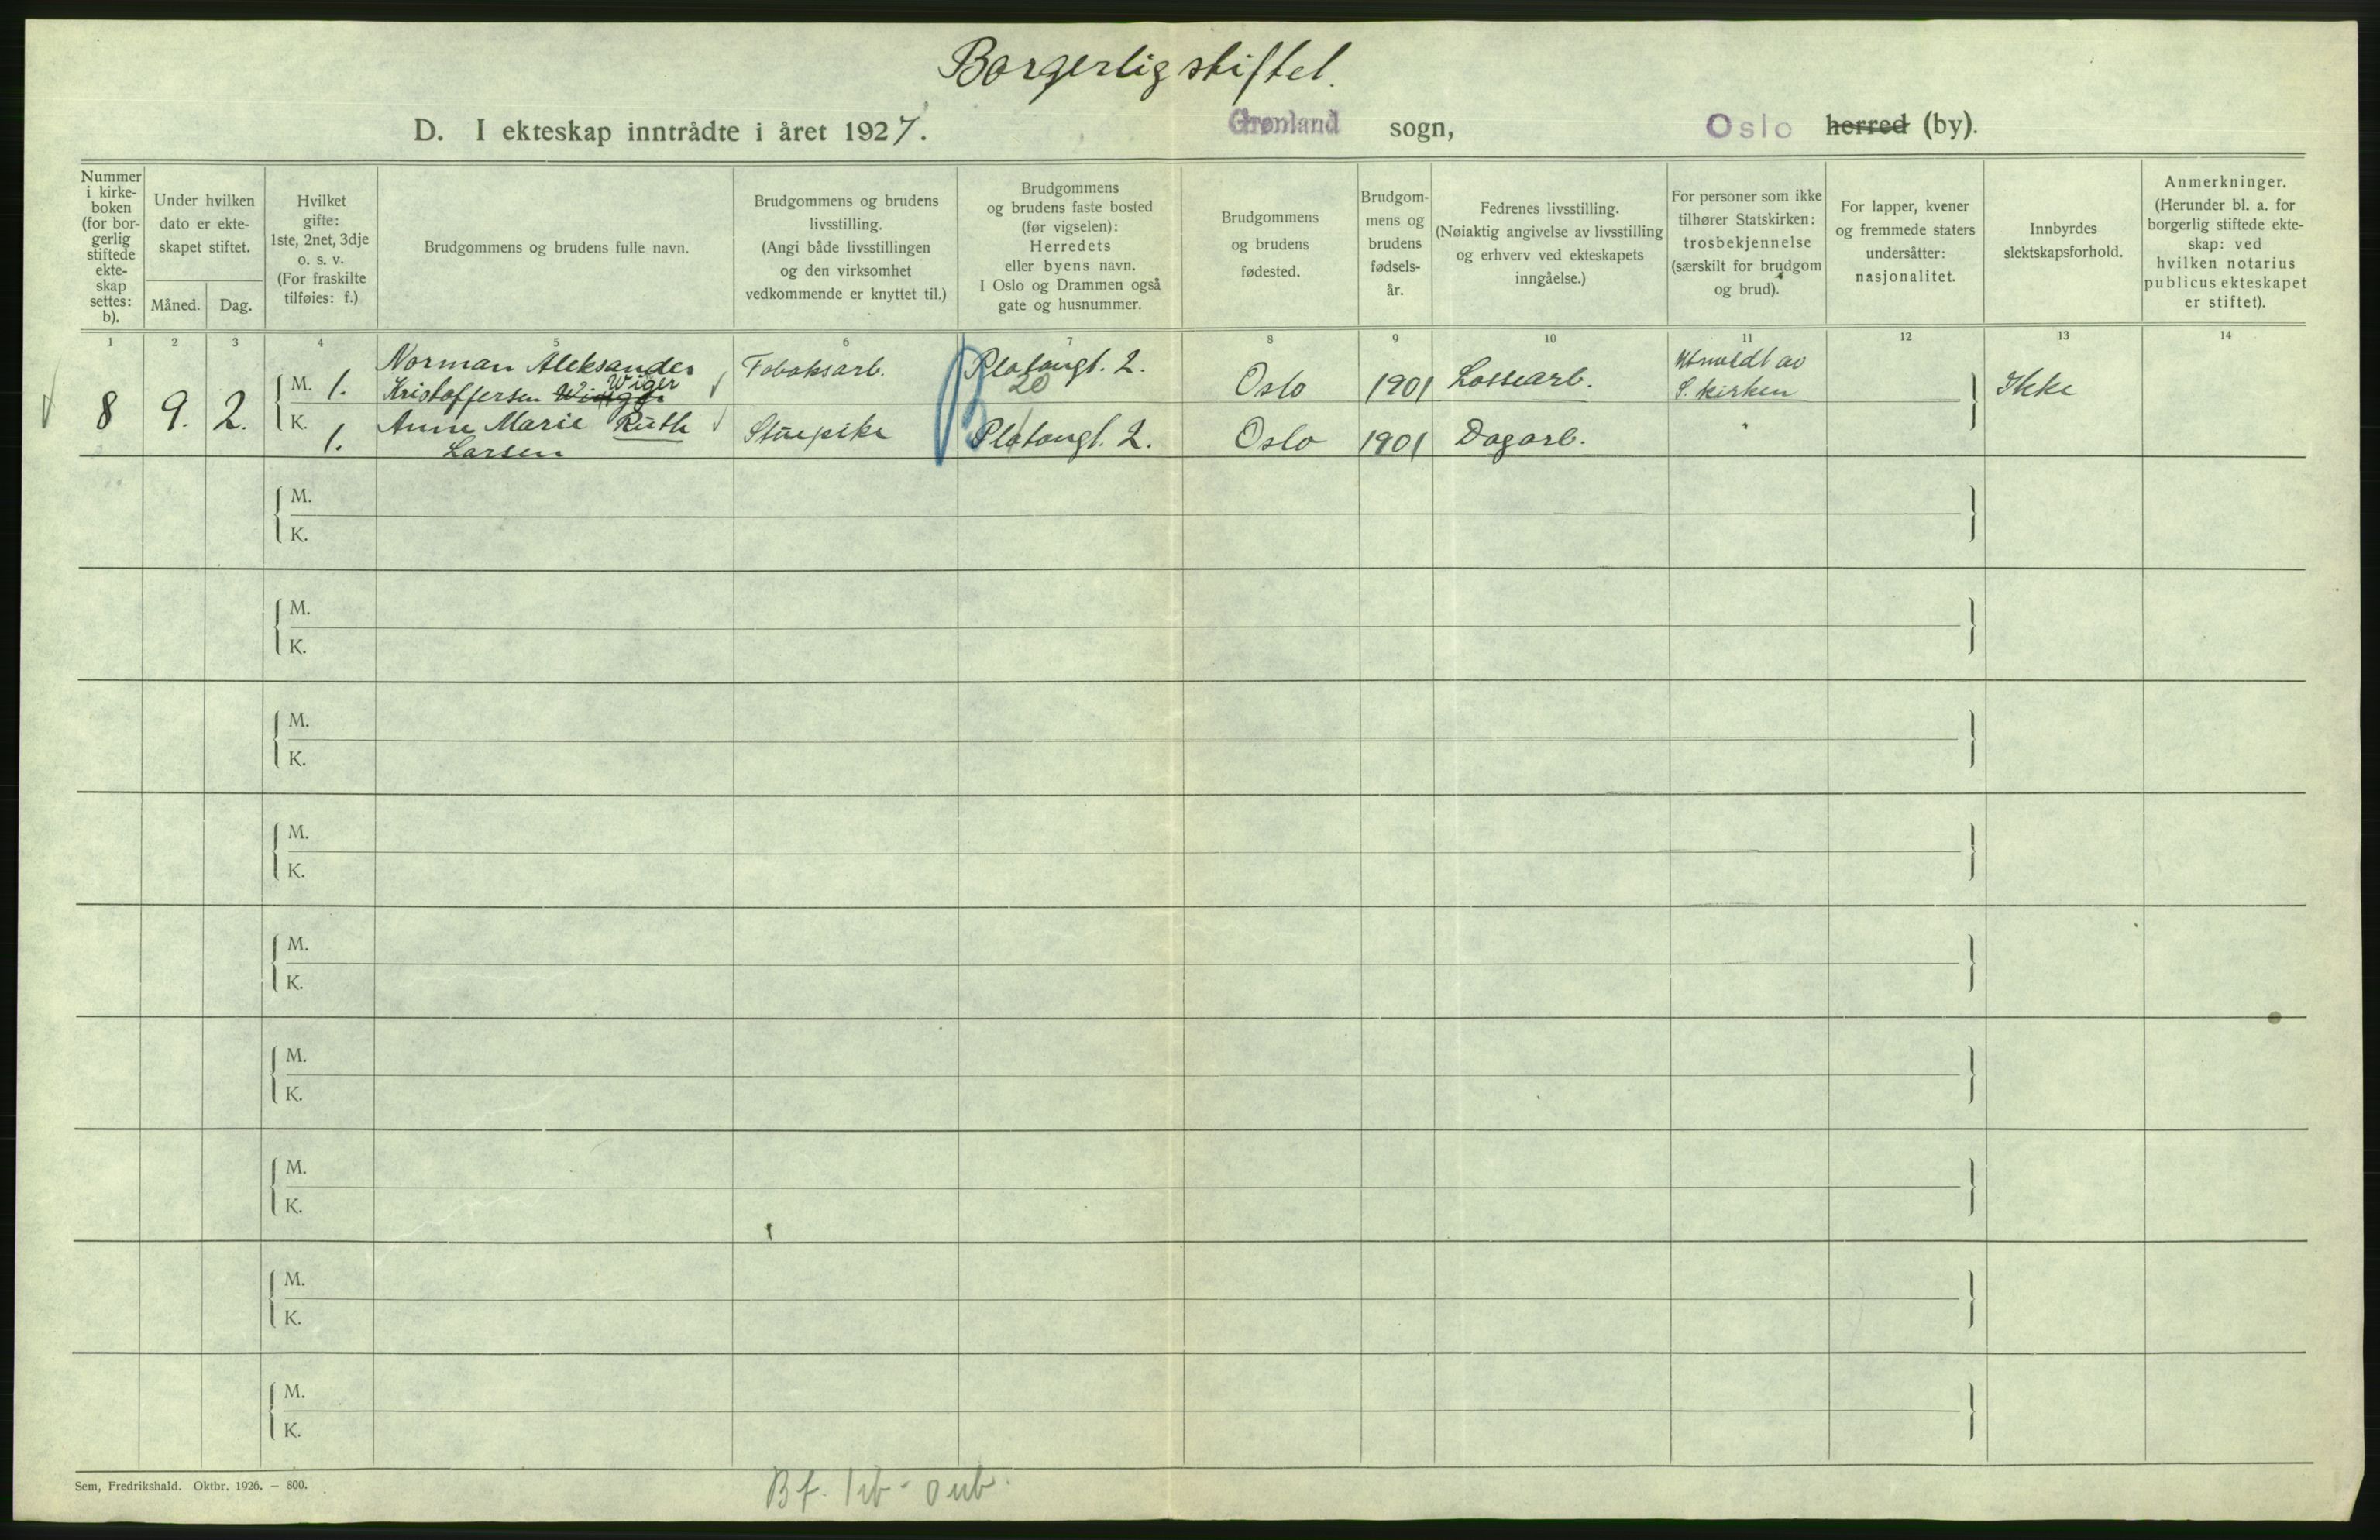 Borgerlig stiftet.
D. I ekteskap inntrådte i året 1927. Grønland sogn, Oslo herred (by).
Nummer i kirke- boken (for bor- gerlig stiftede ekte- skap settes: b).
Under hvilken dato er ekte- skapet stiftet.
Måned. Dag.
Hvilket gifte: 1ste, 2net, 3dje o. s. v. (For fraskilte tilføies: f.)
Brudgommens og brudens fulle navn.
Brudgommens og brudens livsstilling. (Angi både livsstillingen og den virksomhet vedkommende er knyttet til.)
Brudgommens og brudens faste bosted (før vigselen): Herredets eller byens navn. I Oslo og Drammen også gate og husnummer.
Brudgommens og brudens fødested.
Brudgom- mens og brudens fødsels- år.
Fedrenes livsstilling. (Nøiaktig angivelse av livsstilling og erhverv ved ekteskapets inngåelse.)
For personer som ikke tilhører Statskirken: trosbekjennelse (særskilt for brudgom og brud).
For lapper, kvener og fremmede staters undersåtter: nasjonalitet.
Innbyrdes slektskapsforhold.
Anmerkninger. (Herunder bl. a. for borgerlig stiftede ekte- skap: ved hvilken notarius publicus ekteskapet er stiftet).
1 2 3 4 5 6 7 8 9 10 11 12 13 14
8 9. 2.
M. 1. Norman Aleksander Kristoffersen Wiger Tobaksarb. Platougt. 2. 20 Oslo 1901 Lossearb. Utmeldt av S. kirken Ikke
K. 1. Anne Marie Ruth Larsen Stuepike Platougt. 2. Oslo 1901 Dagarb. "
M.
K.
M.
K.
M.
K.
M.
K.
M.
K.
M.
K.
M.
K.
M.
K.
M.
K.
Sem, Fredrikshald. Oktbr. 1926. — 800.